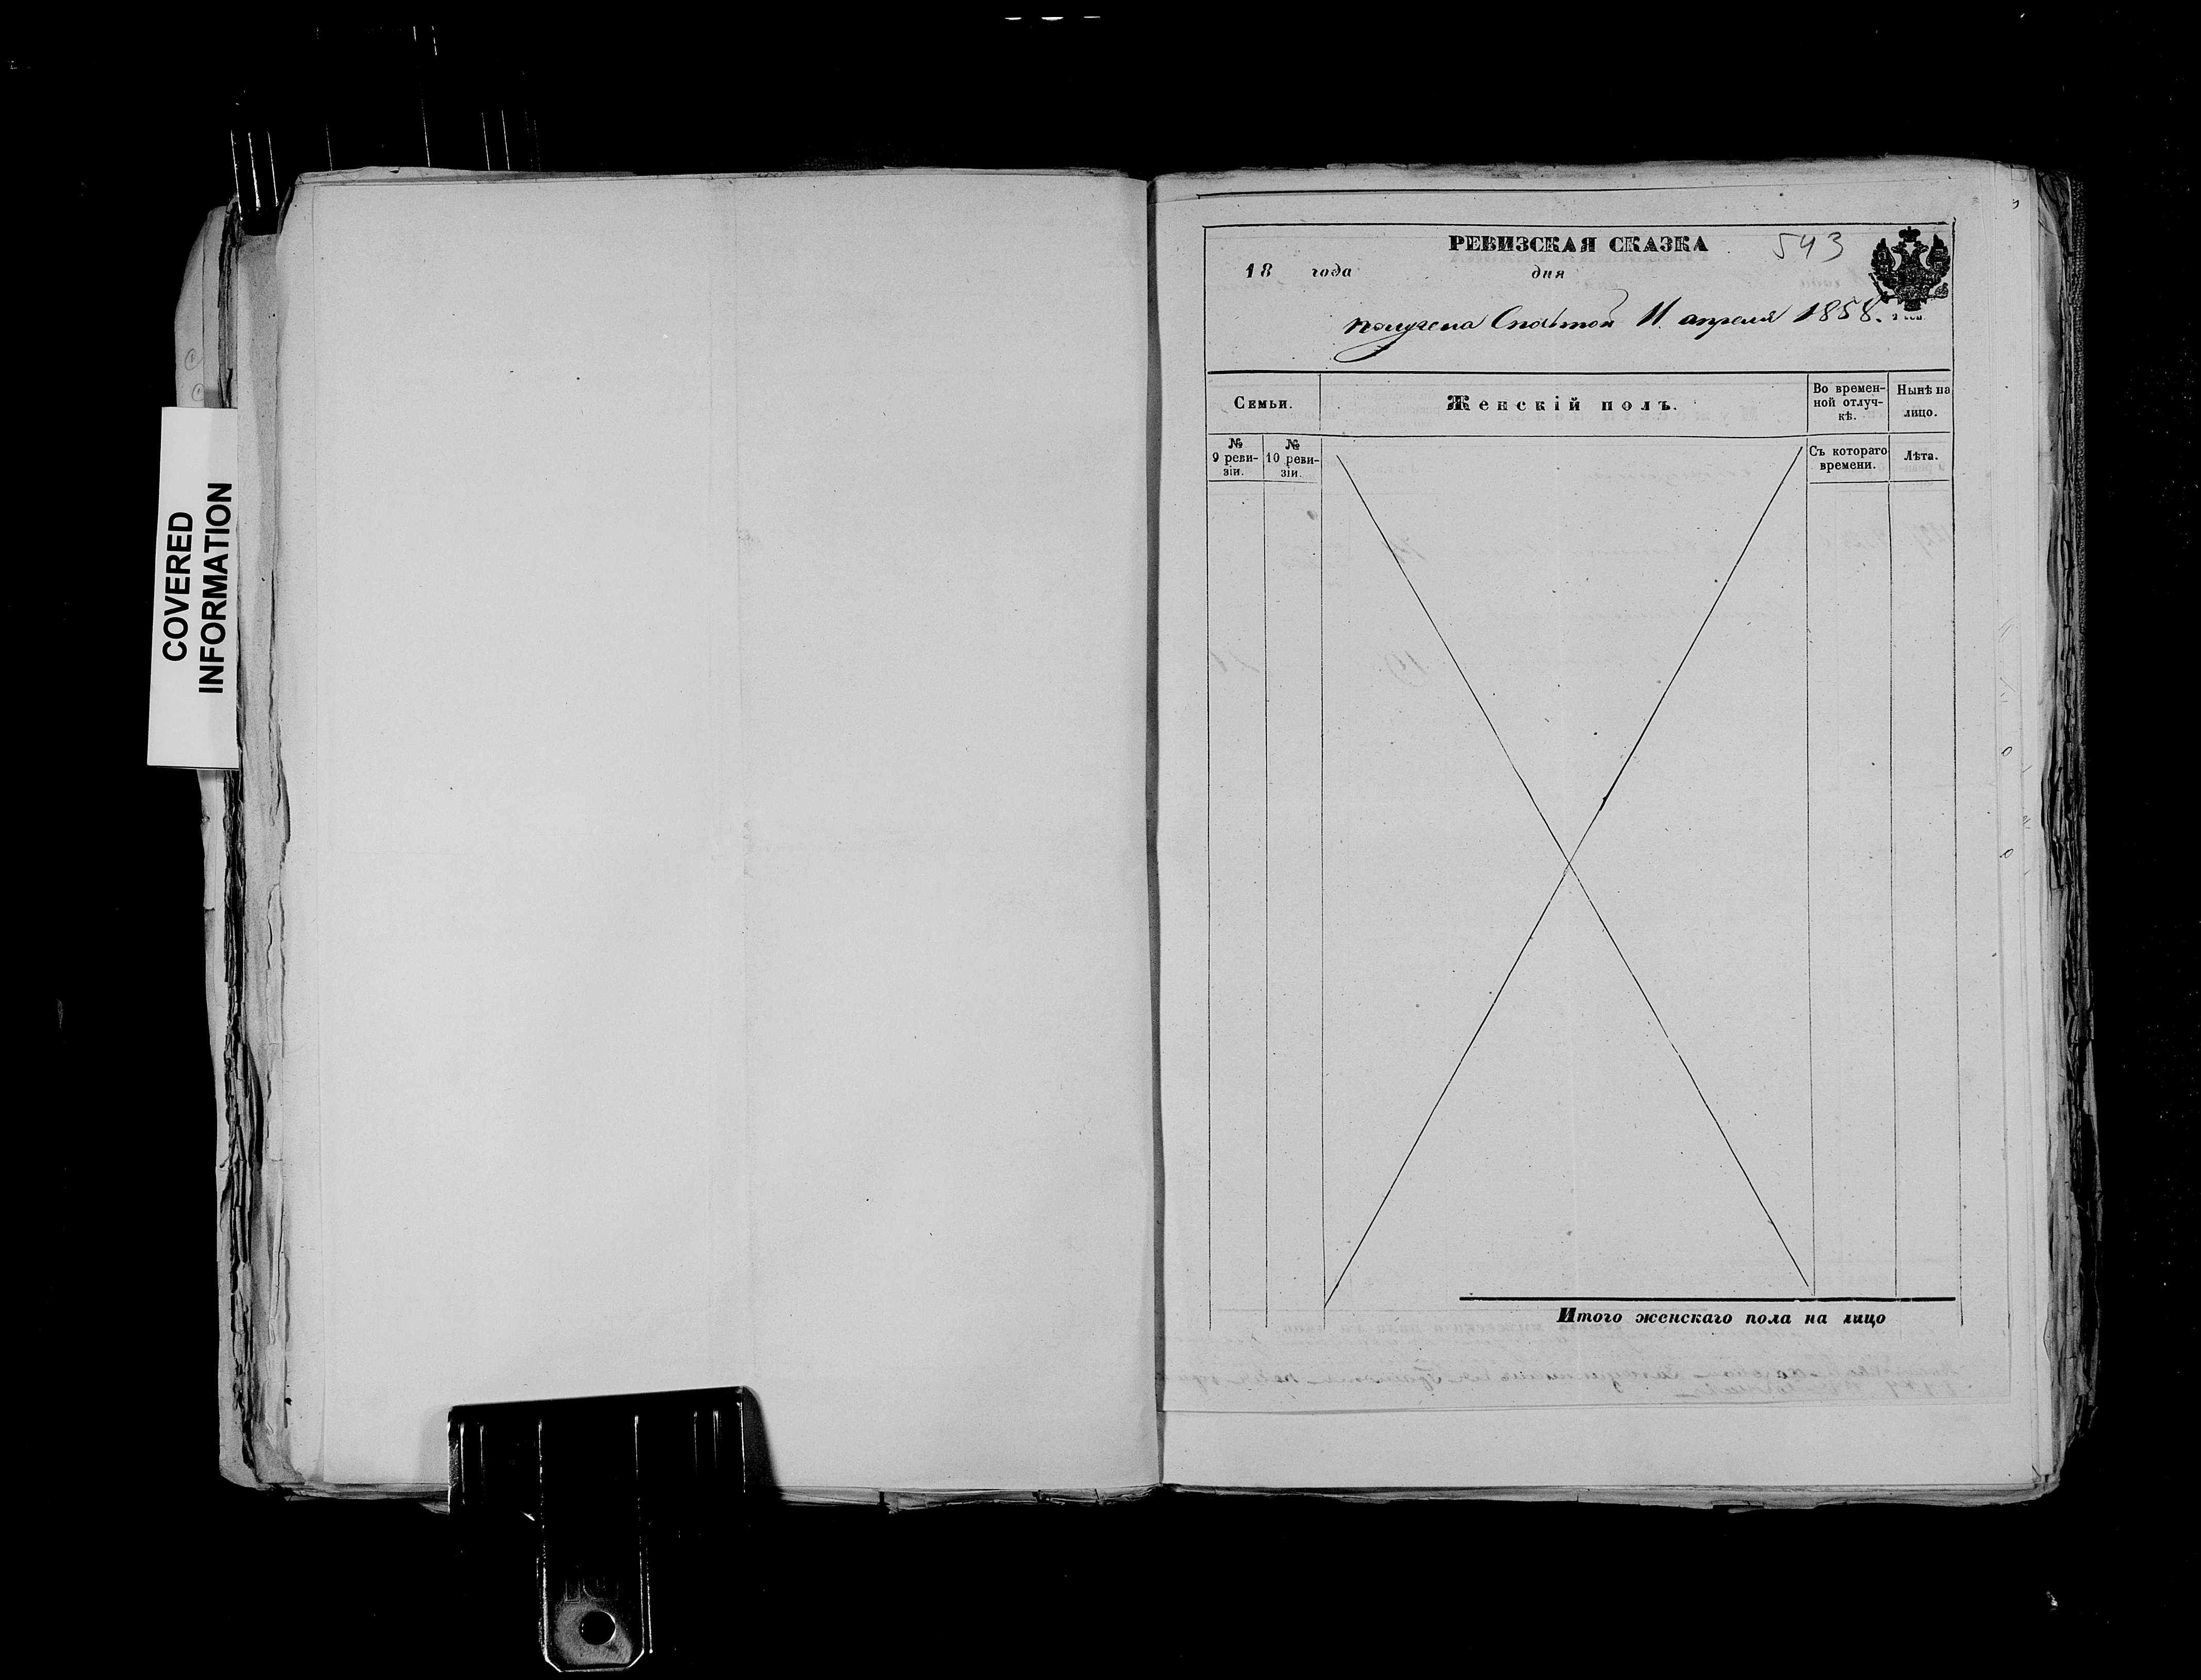 COVERED
INFORMATION
РЕВИЗСКАЯ СКАЗКА 543
18 года дня
получена Споштой 11 апреля 1858.
Семьи.
Женскій полъ.
Во времен-
ной отлуч-
кѣ.
Нынѣ на
лицо.
№
9 реви-
зіи.
№
10 реви-
зіи.
Съ котораго
времени.
Лѣта.
Итого женскаго пола на лицо